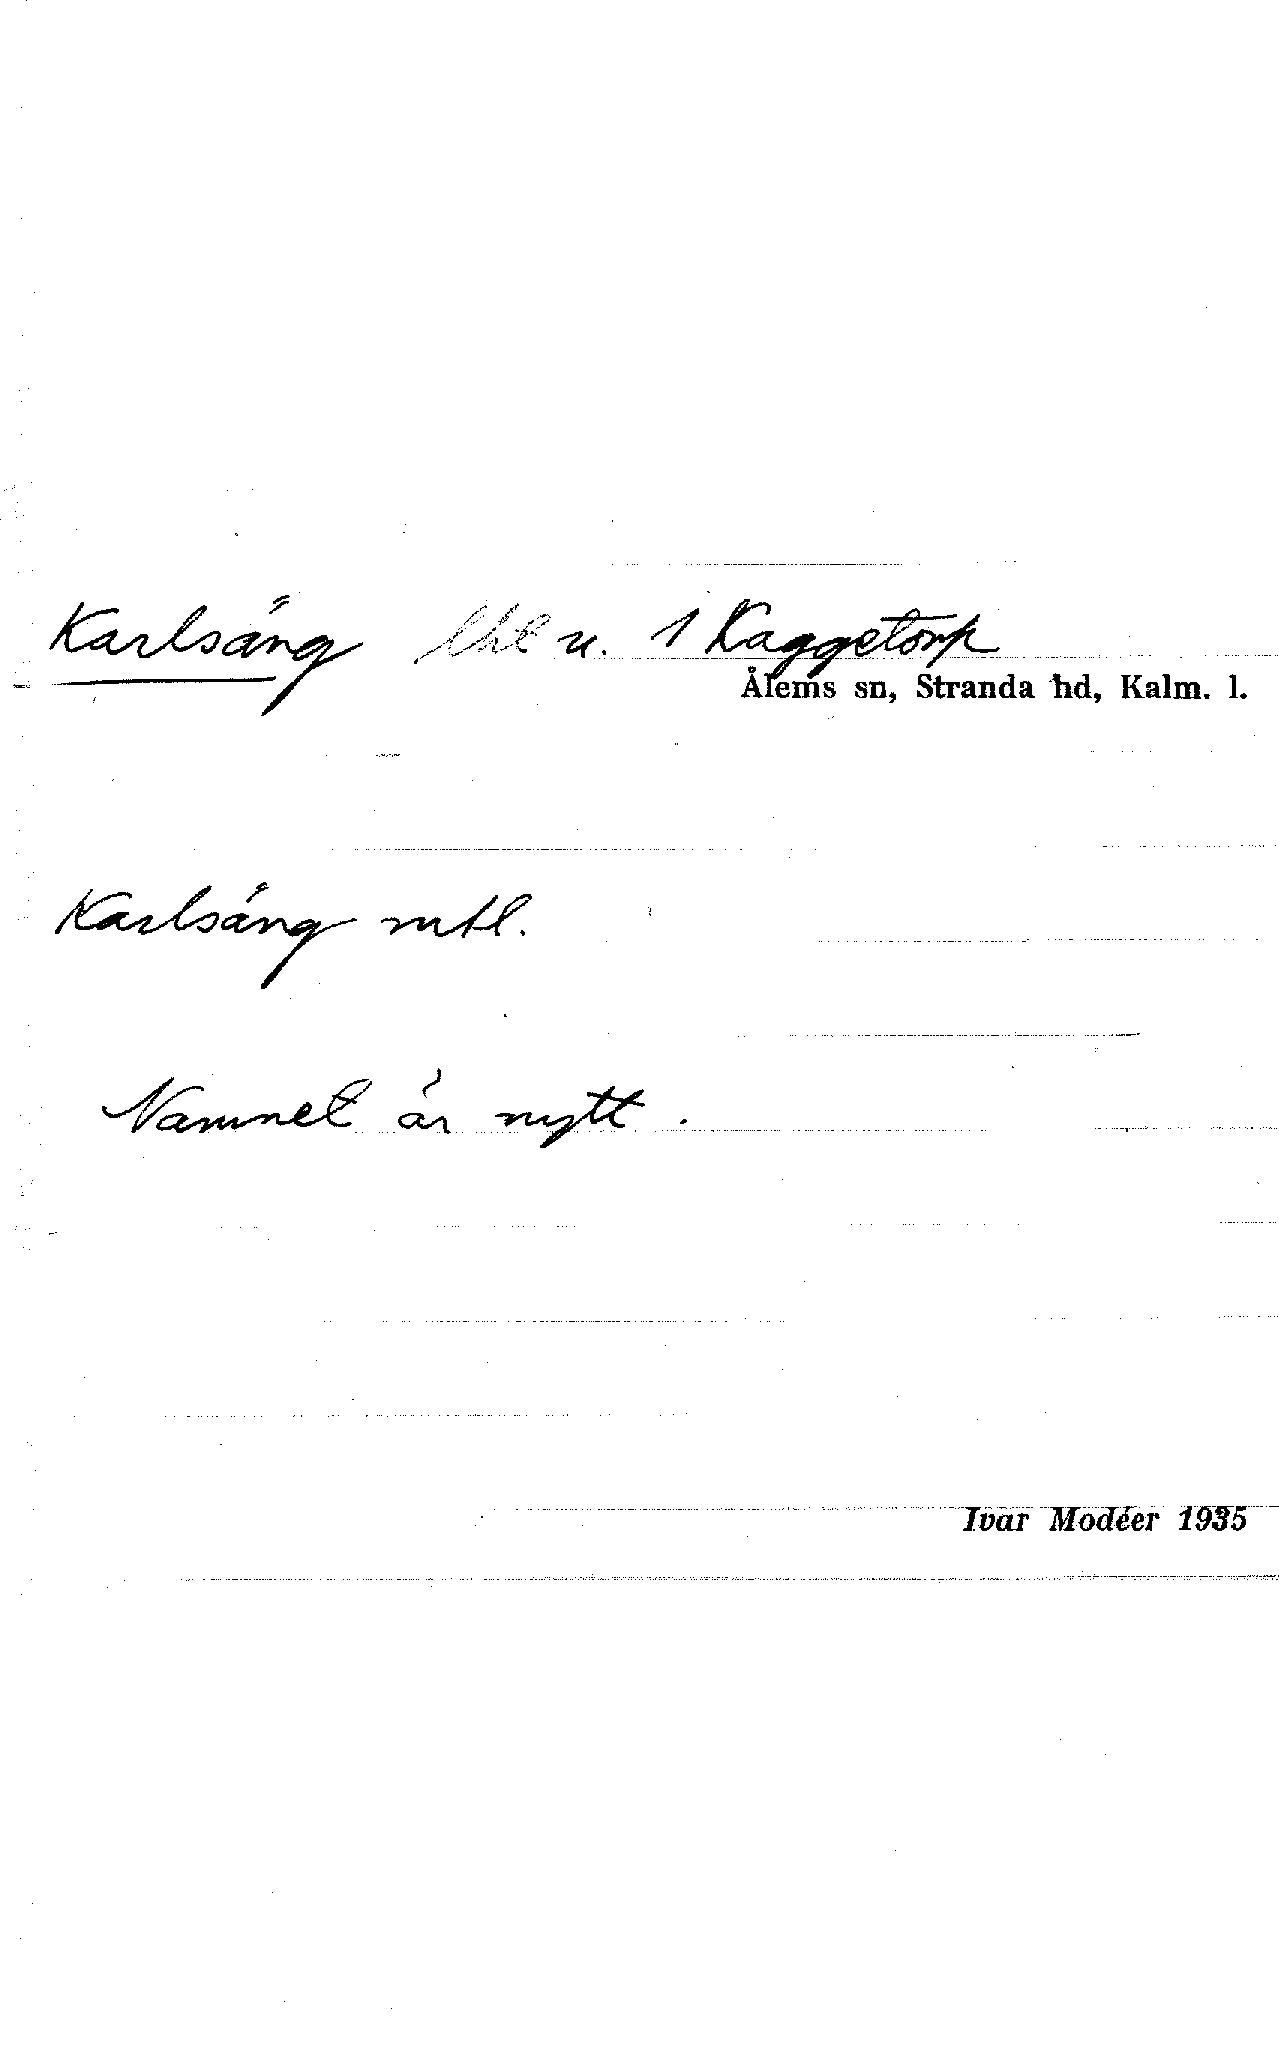 Karlsäng lht u. 1 Kaggetorp
Ålems sn, Stranda hd, Kalm. l.
Karlsäng mtl.
Namnet är nytt.
Ivar Modéer 1935